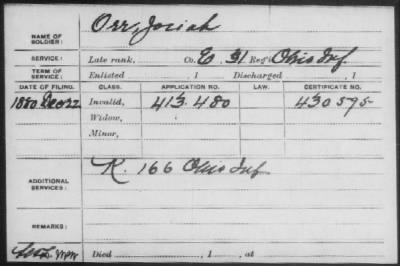 Orr, Josiah
NAME OF SOLDIER:
SERVICE: Late rank, Co. E, 31 Reg't Ohio Inf
TERM OF SERVICE: Enlisted , 1 Discharged , 1
DATE OF FILING. CLASS. APPLICATION NO. LAW. CERTIFICATE NO.
1880 Dec 22 Invalid, 413.480 430595
Widow,
Minor,
ADDITIONAL SERVICES: K. 166 Ohio Inf
REMARKS:
Died , 1 , at